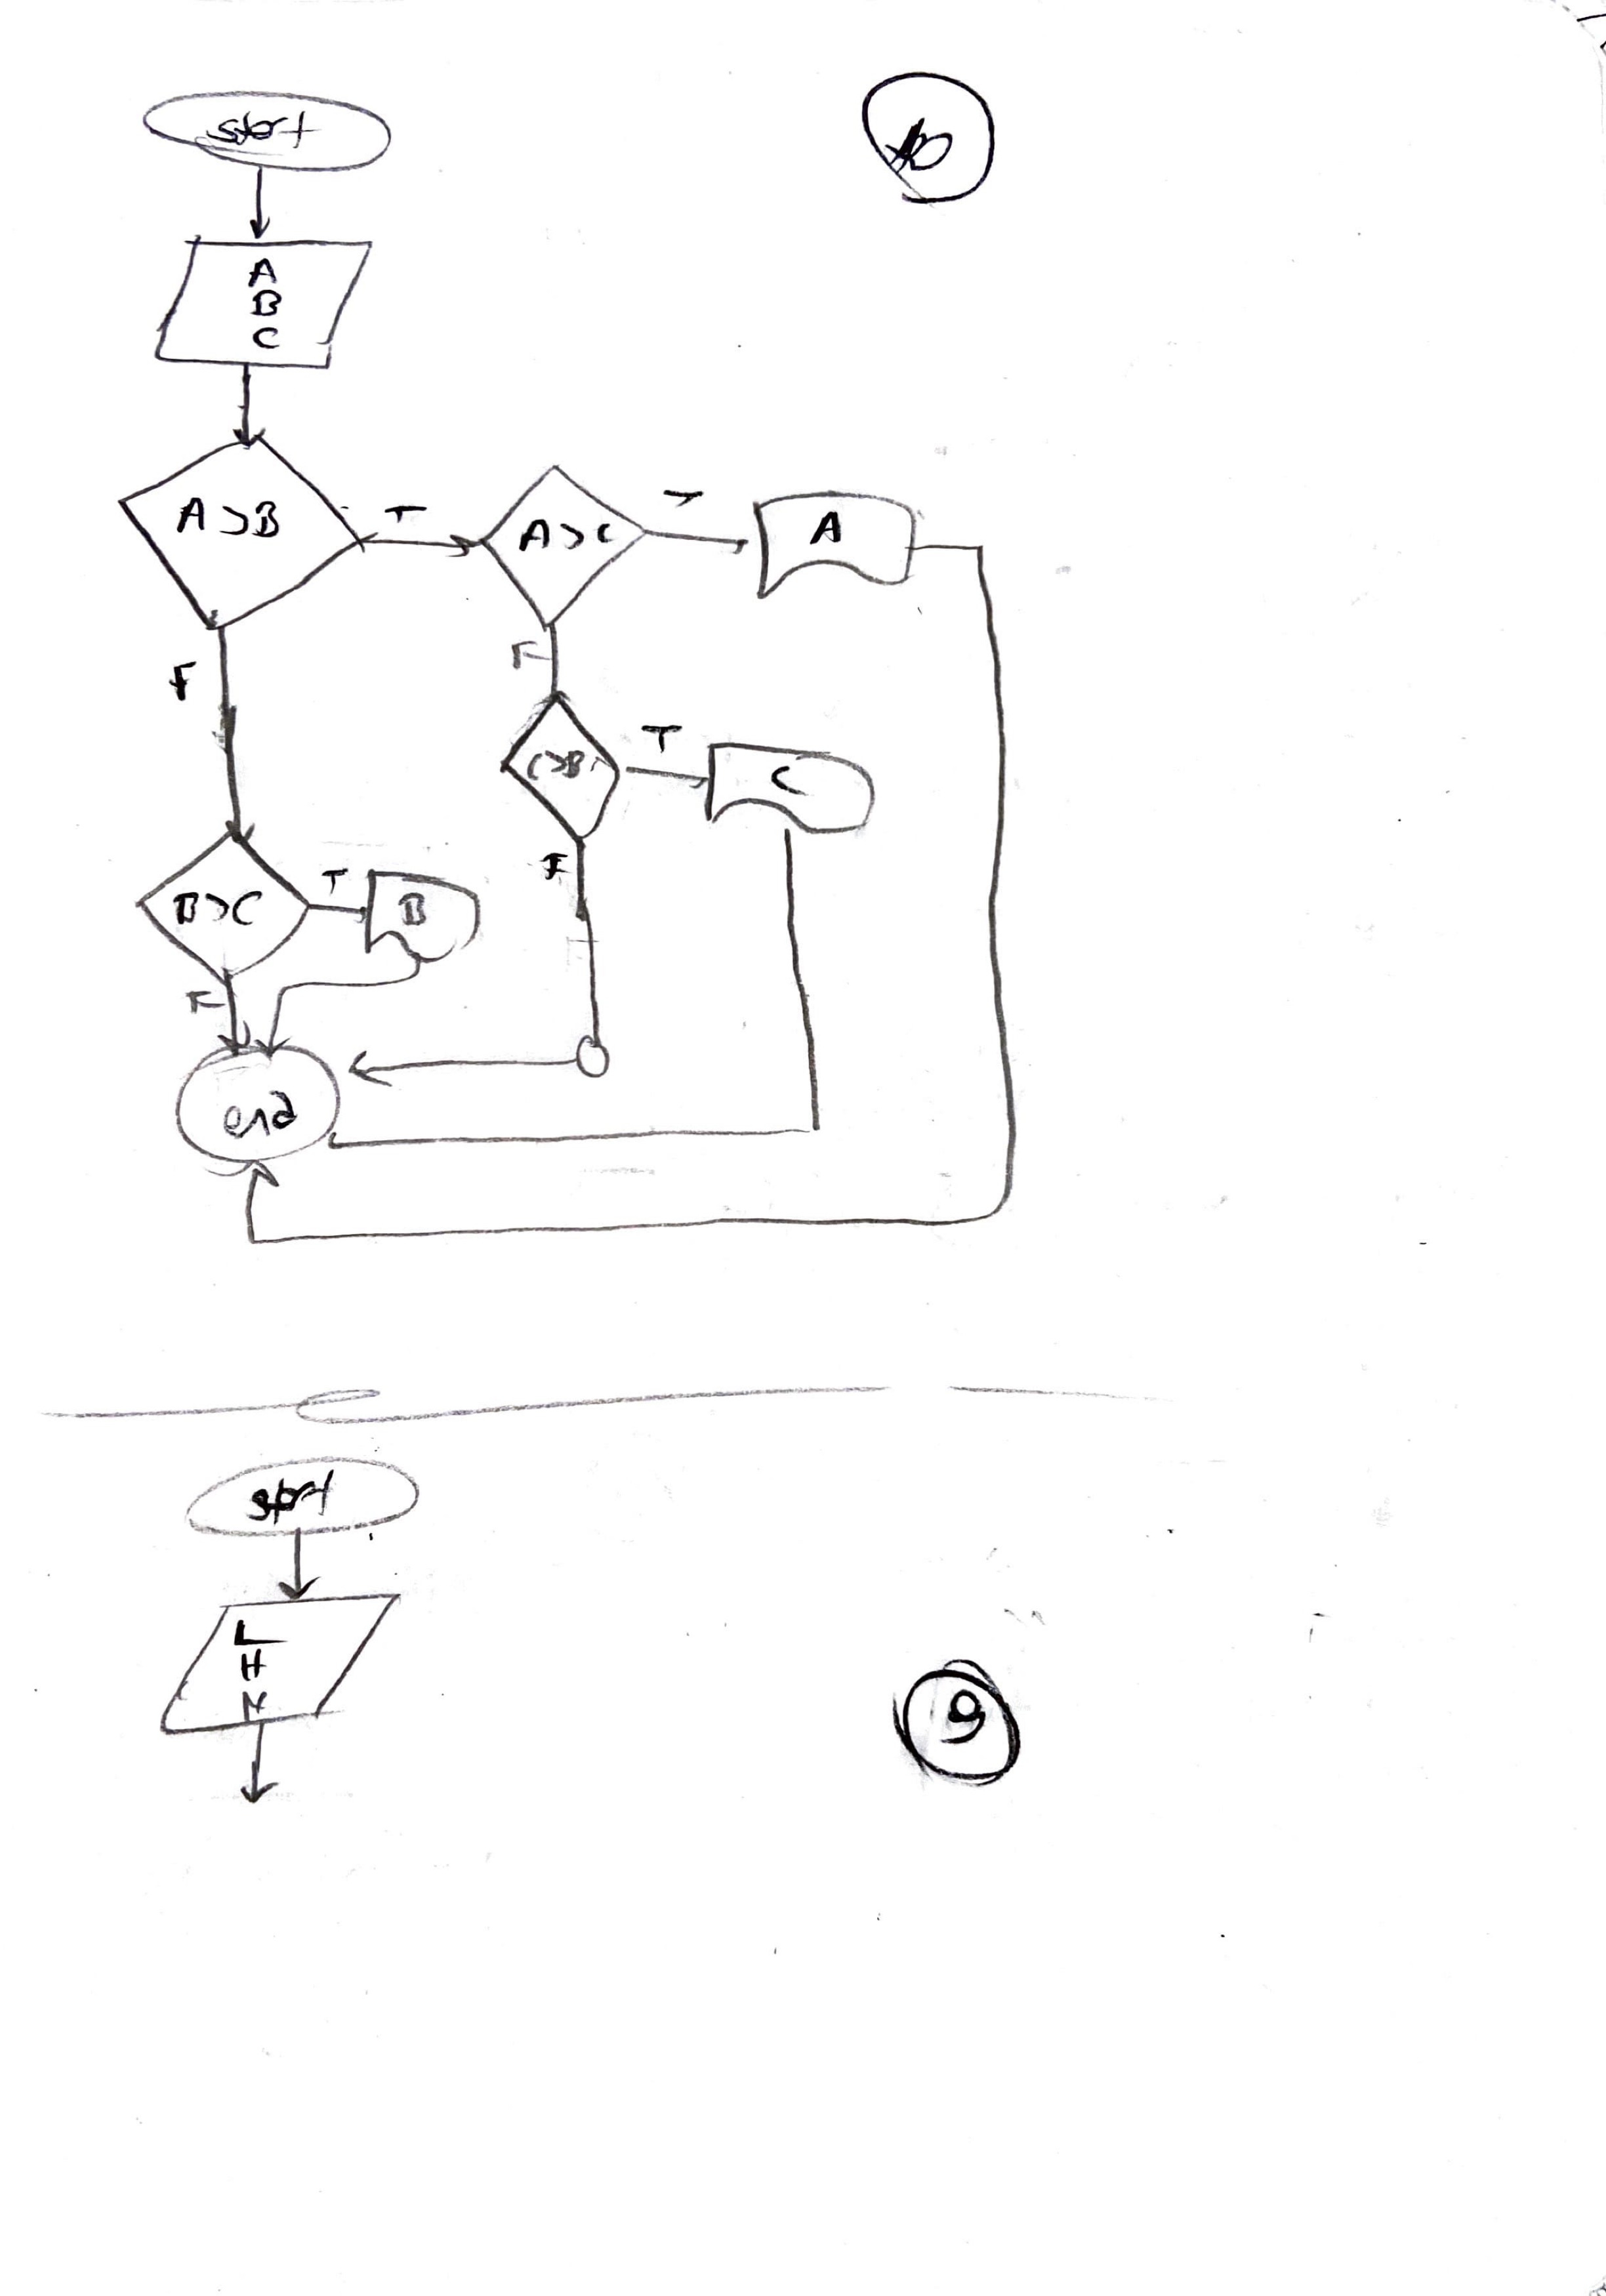 start
A
B
C
A>B
T
A>C
T
A
F
F
C>B
T
C
B>C
T
B
F
F
end
start
L
H
N
9